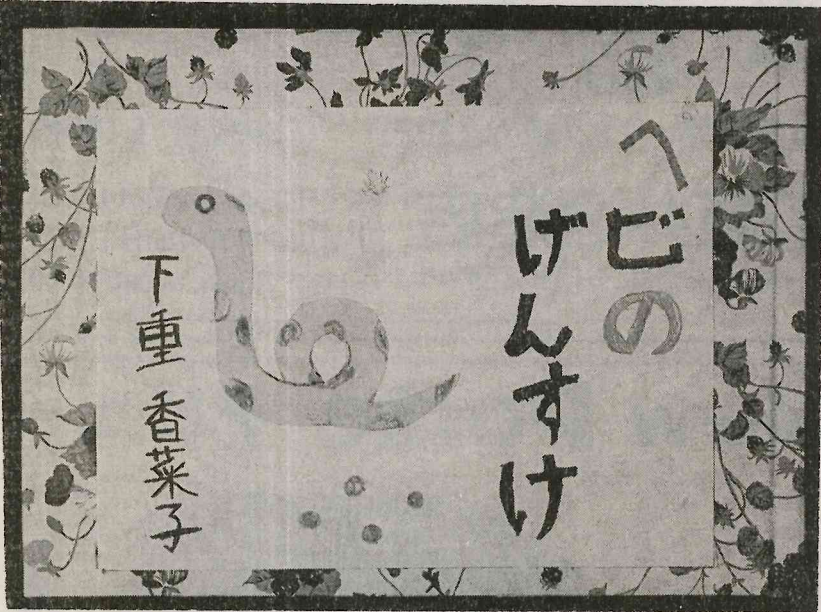 ヘビの
げんすけ
下重 香菜子